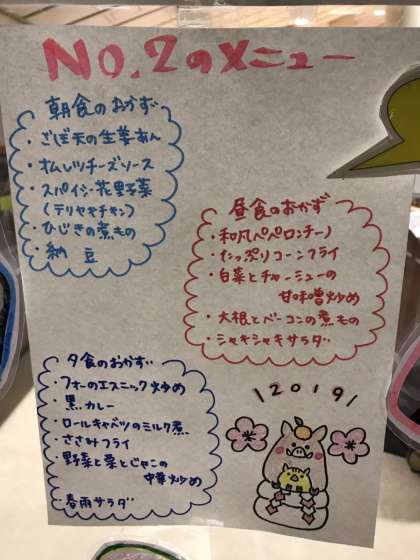 NO.2のメニュー
朝食のおかず
・ごぼ天の生姜あん
・オムレツチーズソース
・スパイシー花野菜
(テリヤキチキン)
・ひじきの煮もの
・納豆
昼食のおかず
・和風ペペロンチーノ
・たっぷりコーンフライ
・白菜とチャーシューの
甘味噌炒め
・大根とベーコンの煮もの
・シャキシャキサラダ
夕食のおかず
・フォーのエスニック炒め
・黒カレー
・ロールキャベツのミルク煮
・ささみフライ
・野菜と栗とじゃこの
中華炒め
・春雨サラダ
\2019/